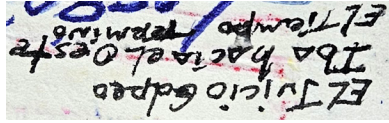 EL Juicio Golpeo
Iba hacia eL Oeste
EL Tiempo termino